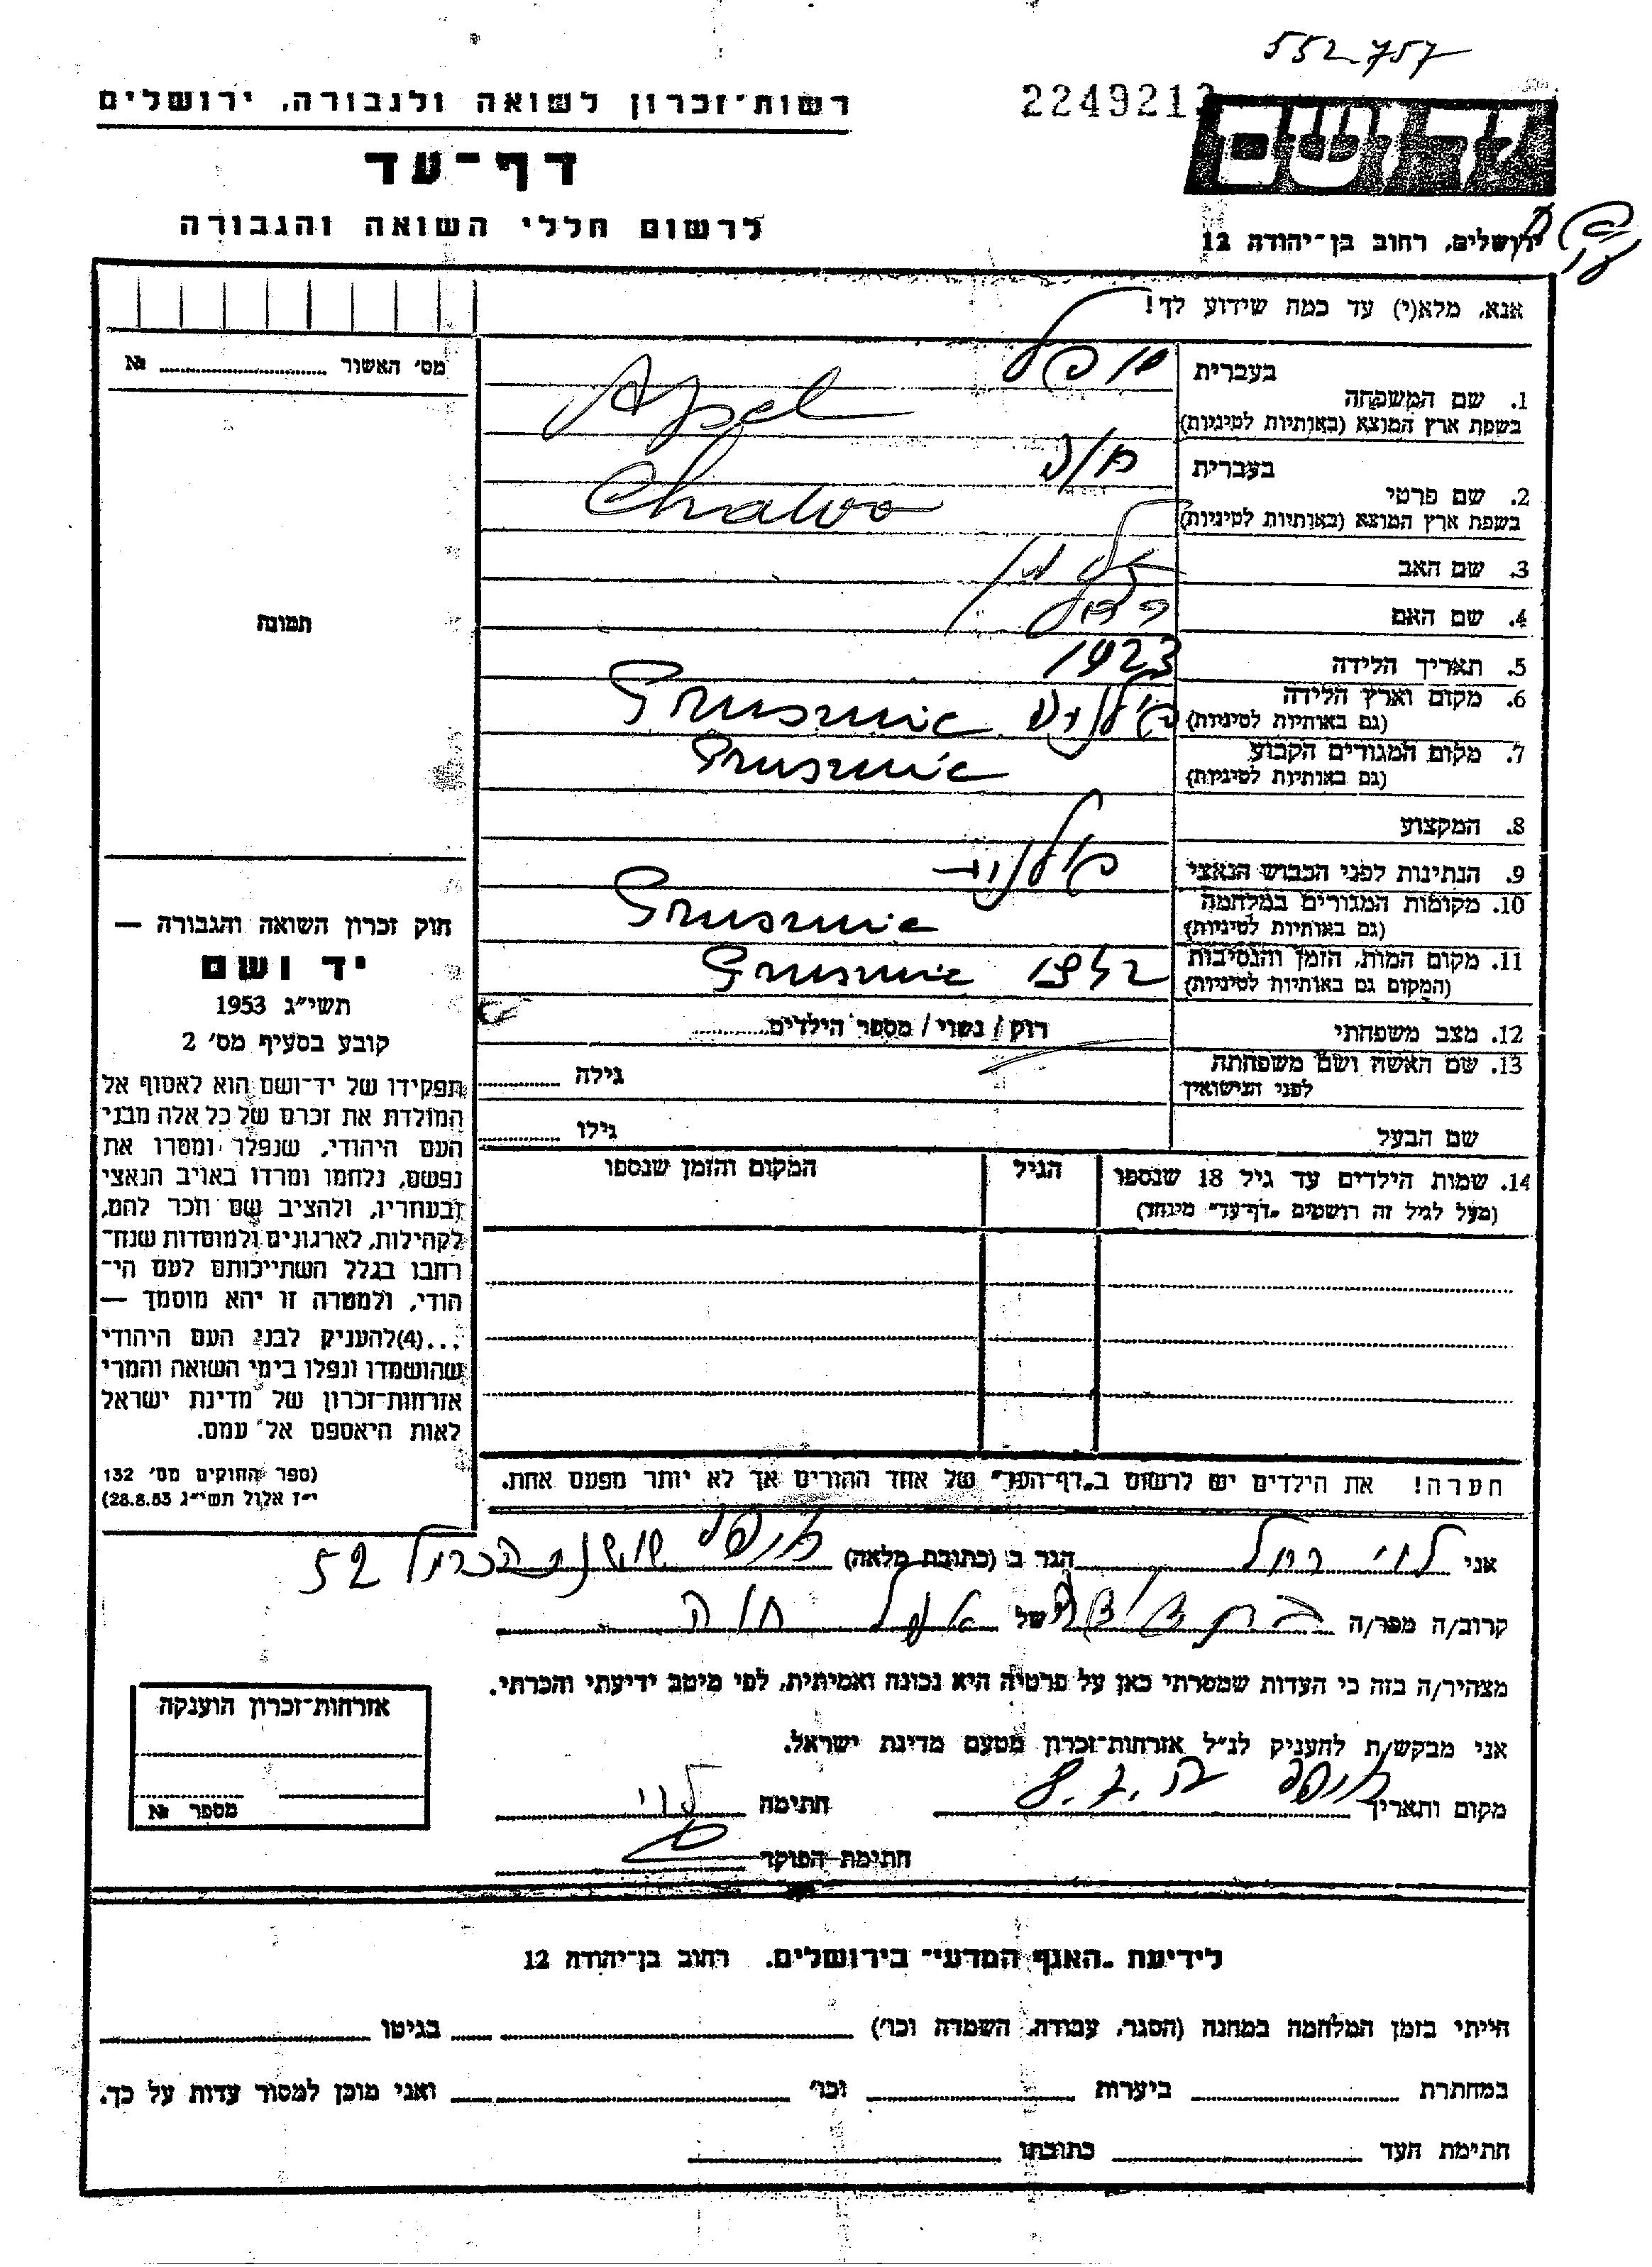 552757
2249212
רשות־זכרון לשואה ולגבורה, ירושלים
יד ושם
דף־עד
לרשום חללי השואה והגבורה
ירושלים, רחוב בן־יהודה 12
אנא, מלא(י) עד כמה שידוע לך!
מס׳ האשור № 
1. שם המשפחה
בעברית אפל
בשפת ארץ המוצא (באותיות לטיניות) Apel
2. שם פרטי
בעברית חוה
בשפת ארץ המוצא (באותיות לטיניות) Chawa
3. שם האב
4. שם האם רחל
5. תאריך הלידה 1923
6. מקום וארץ הלידה
(גם באותיות לטיניות) פולניה Grusznie
7. מקום המגורים הקבוע
(גם באותיות לטיניות) Grusznie
8. המקצוע
9. הנתינות לפני הכבוש הנאצי פולניה
10. מקומות המגורים במלחמה
(גם באותיות לטיניות) Grusznie
11. מקום המות, הזמן והנסיבות
(המקום גם באותיות לטיניות) Grusznie
12. מצב משפחתי רוק / נשוי / מספר הילדים
13. שם האשה ושם משפחתה
לפני הנישואין גילה
שם הבעל גילו
14. שמות הילדים עד גיל 18 שנספו
(מעל לגיל זה רושמים „דף־עד” מיוחד)
הגיל
המקום והזמן שנספו
תמונה
חוק זכרון השואה והגבורה —
יד ושם
תשי״ג 1953
קובע בסעיף מס׳ 2
תפקידו של יד־ושם הוא לאסוף אל
המולדת את זכרם של כל אלה מבני
העם היהודי, שנפלו ומסרו את
נפשם, נלחמו ומרדו באויב הנאצי
ובעוזריו, ולהציב שם וזכר להם,
לקהילות, לארגונים ולמוסדות שנח־
רבו בגלל השתייכותם לעם הי־
הודי, ולמטרה זו יהא מוסמך —
...(4) להעניק לבני העם היהודי
שהושמדו ונפלו בימי השואה והמרי
אזרחות־זכרון של מדינת ישראל
לאות היאספם אל עמם.
(ספר החוקים מס׳ 132
י״ז אלול תשי״ג 28.8.53)
הערה! את הילדים יש לרשום ב„דף־העד” של אחד ההורים אך לא יותר מפעם אחת.
אני לוי רחל הגר ב (כתובת מלאה) חיפה שושנת הכרמל 52
קרוב/ה מכר/ה בת דודה של אפל חוה
מצהיר/ה בזה כי העדות שמסרתי כאן על פרטיה היא נכונה ואמיתית, לפי מיטב ידיעתי והכרתי.
אני מבקש/ת להעניק לנ״ל אזרחות־זכרון מטעם מדינת ישראל.
מקום ותאריך חיפה חתימה לוי
חתימת הפוקד
אזרחות־זכרון הוענקה
מספר №
לידיעת „האגף המדעי” בירושלים, רחוב בן־יהודה 12
הייתי בזמן המלחמה במחנה (הסגר, עבודה, השמדה וכו׳) בגיטו
במחתרת ביערות וכו׳ ואני מוכן למסור עדות על כך.
חתימת העד כתובתו